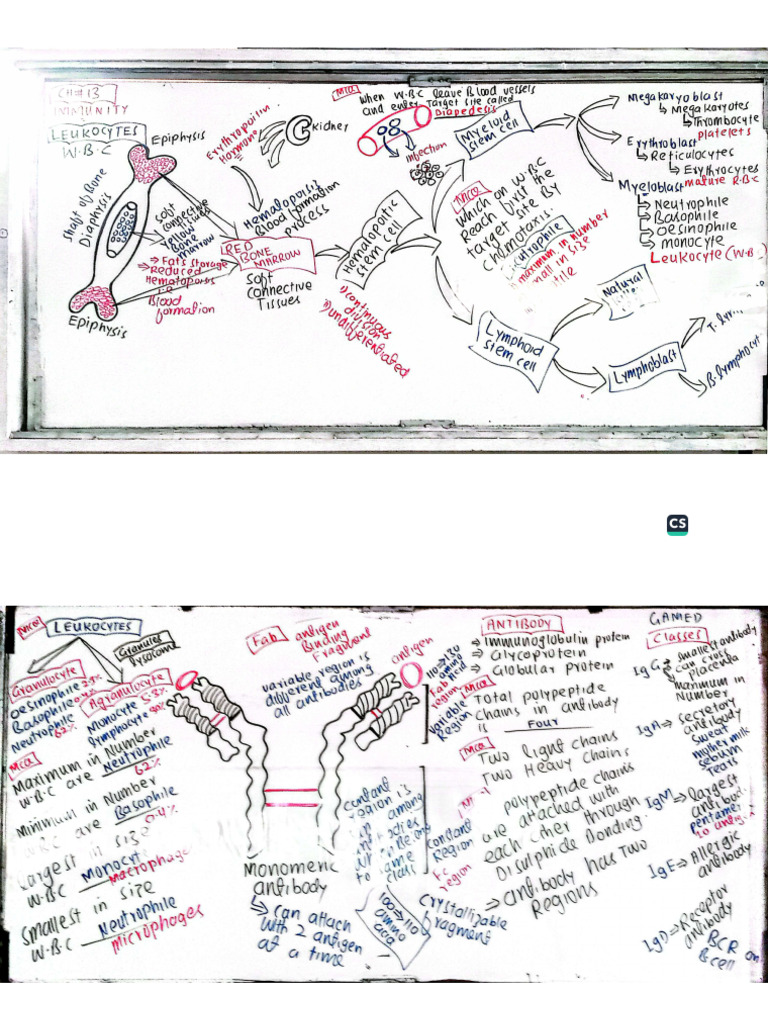 CH#13
IMMUNITY
LEUKOCYTES
W.B.C
Epiphysis
Shaft of Bone
Diaphysis
Soft
connective
tissues
Yellow
Bone
marrow
⇒ Fats storage
⇒ Reduced
Hematoposis
i.e
Blood
formation
Epiphysis
Erythropoitin
Hormone
Kidney
Hematoposis
Blood formation
process
RED
BONE
MARROW
Soft
Connective
Tissues
Mcq
When W.B.C leave Blood vessels
and enter Target site called
Diapedesis
infection
Hematopotic
stem cell
i) continuous
division
ii) undifferentiated
Myeloid
stem cell
Mcq
which on W.B.C
Reach first the
target site By
chemotaxis.
maximum in number
Lymphoid
stem cell
Megakaryoblast
Megakaryotes
Thrombocyte
platelets
Erythroblast
Reticulocytes
Erythrocytes
mature R.B.C
Myeloblast
Neutrophile
Basophile
Oesinophile
monocyte
Leukocyte (W.B.
Natural
Lymphoblast
B.lymphocyt
CS
Mcq
LEUKOCYTES
Granules
lysosome
Granulocyte
Oesinophile
Basophile 0.4%
Neutrophile
62%
Agranulocyte
Monocyte 5.3%
Lymphocyte
Mcq
Maximum in Number
W.B.C are Neutrophile
62%
Minimum in Number
are Basophile
0.4%
Largest in size
W.BC Monocyt
macrophage
Smallest in size
W.B.C Neutrophile
microphages
Fab
antigen
Binding
Fragment
variable region is
different among
all antibodies
antigen
Fab
region
Variable
Region
constant
region is
among
same
class
Constant
Region
Fc
region
Crystallizable
fragment
100→110
amino
acid
Monomeric
antibody
⇒ Can attach
with 2 antigen
at a time
ANTIBODY
⇒ immunoglobulin protein
⇒ Glycoprotein
⇒ Globular protein
Mcq
Total polypeptide
chains in antibody
is Four
Mcq
Two light chains
Two Heavy chains
polypeptide chains
are attached with
each other through
Disulphide Bonding.
⇒ antibody has Two
Regions
GAMED
Classes
IgG
smallest antibody
can cross
placenta
maximum in
Number
IgA
secretory
antibody
sweat
mother milk
sebum
Tears
IgM
largest
IgE ⇒ Allergic
antibody
IgD ⇒ Receptor
antibody
BCR on
B.cell